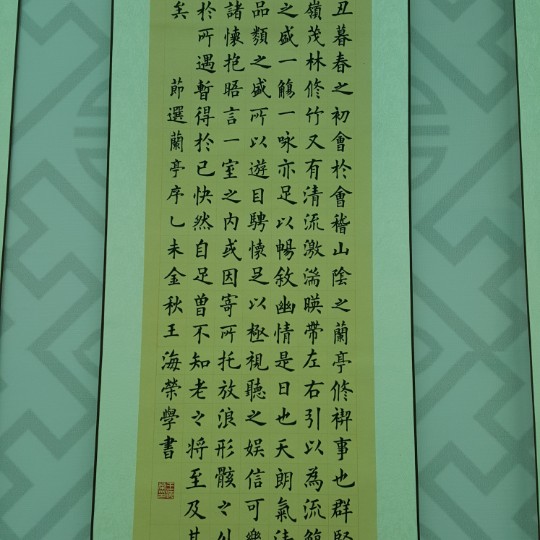 丑暮春之初會於會稽山陰之蘭亭修禊事也群賢
嶺茂林修竹又有清流激湍暎帶左右引以為流觴
之盛一觴一咏亦足以暢敘幽情是日也天朗氣清
品類之盛所以遊目騁懷足以極視聽之娛信可樂
諸懷抱晤言一室之内或因寄所托放浪形骸之外
於所遇暫得於己快然自足曾不知老之将至及其
矣 節選蘭亭序乙未金秋王海榮學書